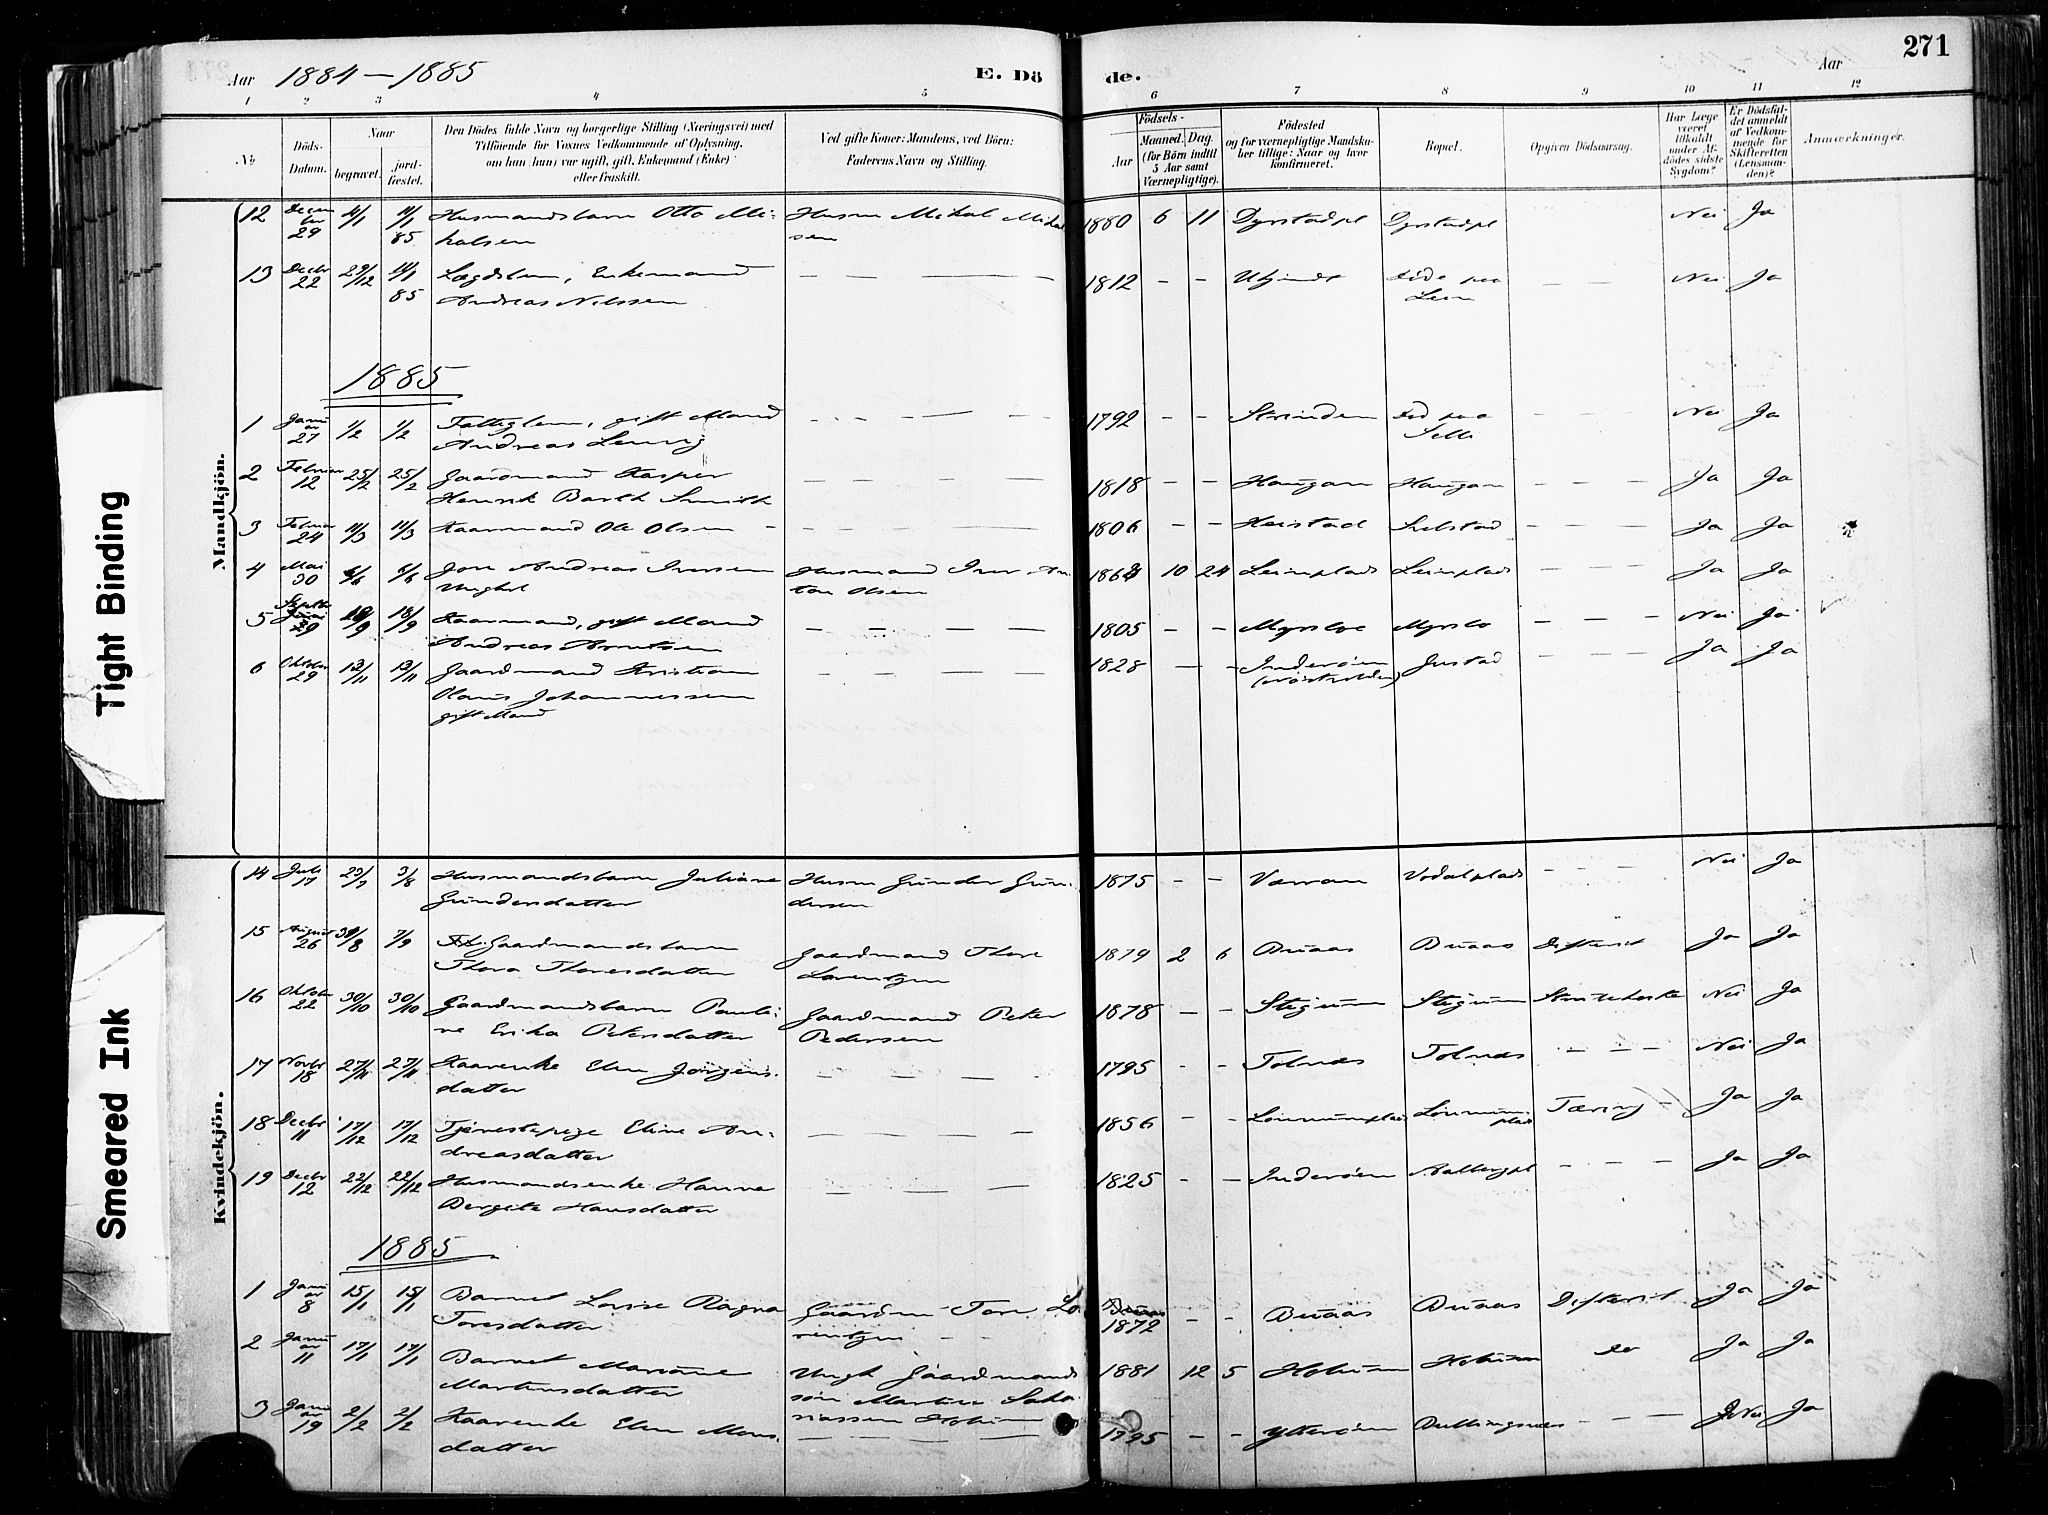 Aar 1884 – 1885
E. Dö
de.
Aar
271
1 2 3 4 5 6 7 8 9 10 11 12
№
Döds-
Datum.
Naar
begravet.
jord-
fæstet.
Den Dödes fulde Navn og borgerlige Stilling (Næringsvei) med
Tilföiende for Voxnes Vedkommende af Oplysning,
om han (hun) var ugift, gift, Enkemand (Enke)
eller fraskilt.
Ved gifte Koner: Mandens, ved Börn:
Faderens Navn og Stilling.
Födsels-
Aar
Maaned.
Dag.
(for Börn indtil
5 Aar samt
Værnepligtige).
Födested
og for værnepligtige Mandska-
ber tillige: Naar og hvor
konfirmeret.
Bopæl.
Opgiven Dödsaarsag.
Har Læge
været
tilkaldt
under Af-
dödes sidste
Sygdom?
Er Dödsfal-
det anmeldt
af Vedkom-
mende for
Skifteretten
(Lensman-
den)?
Anmærkninger.
Mandkjön.
12 Decem
ber
29 4/1 11/1
85 Husmandsbarn Otto Mi-
kalsen Husm Mikal Mikal
sen 1880 6 11 Dyrstadpl Dyrstadpl Nei Ja
13 Decbr
22 29/12 11/1
85 Lægdslem, Enkemand
Andreas Nilssen — — — 1812 - - død paa
Lein — — Nei Ja
1885
1 Janu
ar
27 1/2 1/2 Fattiglem, gift Mand
Andreas — — — 1792 - - Strinden død paa
— — — Nei Ja
2 Februar
12 25/2 25/2 Gaardmand Kasper
Henrik Barth Smith — — — 1818 - - Haugan Haugan — — — Ja Ja
3 Februar
24 11/3 11/3 Kaarmand Ole Olsen — — — 1806 - - Heistad — — — Ja Ja
4 Mai
30 6/6 6/6 Jon Andreas Iversen
Ungkl Husmand Iver An-
ton Olsen 10 24 Leinplads Leinplads Ja Ja
5 Septbr
9 18/9 18/9 Kaarmand, gift Mand
Andreas Arntsen — — — 1805 - - Myrsloe Myrslo — — — Nei Ja
6 Oktober
29 13/11 13/11 Gaardmand Kristian
Olaus Johannessen
gift Mand — — — 1828 - - Inderøen
Justad — — — Ja Ja
Kvindekjön.
14 Juli
17 3/8 Husmandsbarn Juliane
Gundersdatter Husm Gunder Gun-
dersen 1875 - - Værran Vodalplads — — — Nei Ja
15 August
26 7/9 Gaardmandsbarn
Thora Thoresdatter Gaardmand Thore
Lorentzen 1879 2 6 Duaas Duaas Difterit Ja Ja
16 Oktober
22 30/10 30/10 Gaardmandsbarn Pauli-
ne Erika Petersdatter Gaardmand Peter
Pedersen 1878 - - Stigum Stigum Strubehoste Nei Ja
17 Novbr
18 27/11 27/11 Kaarenke Elen Jørgens-
datter — — — 1795 - - Tolnæs Tolnæs — — — Nei Ja
18 Decbr
11 17/12 17/12 Tjenestepige Eline An-
dreasdatter — — — 1856 - - Tæring Ja Ja
19 Decbr
12 22/12 22/12 Husmandsenke Hanna
Bergete Hansdatter — — — 1825 - - Inderøen Aalbergpl — — — Ja Ja
1885
1 Janu
ar
8 15/1 15/1 Barnet Lovise Ragna
Toresdatter Gaardm Tore Lo
rentzen 1872 - - Duaas Duaas Difterit Ja Ja
2 Janu
ar
11 17/1 17/1 Barnet
Martinsdatter Ungk Gaardmands
søn Martin Saka
riassen 1881 12 5 do Ja Ja
3 Janu
ar
19 2/2 2/2 Kaarenke Elen Mons-
datter — — — 1795 - - Ytterøen — — — Nei Ja
Tight Binding
Smeared Ink